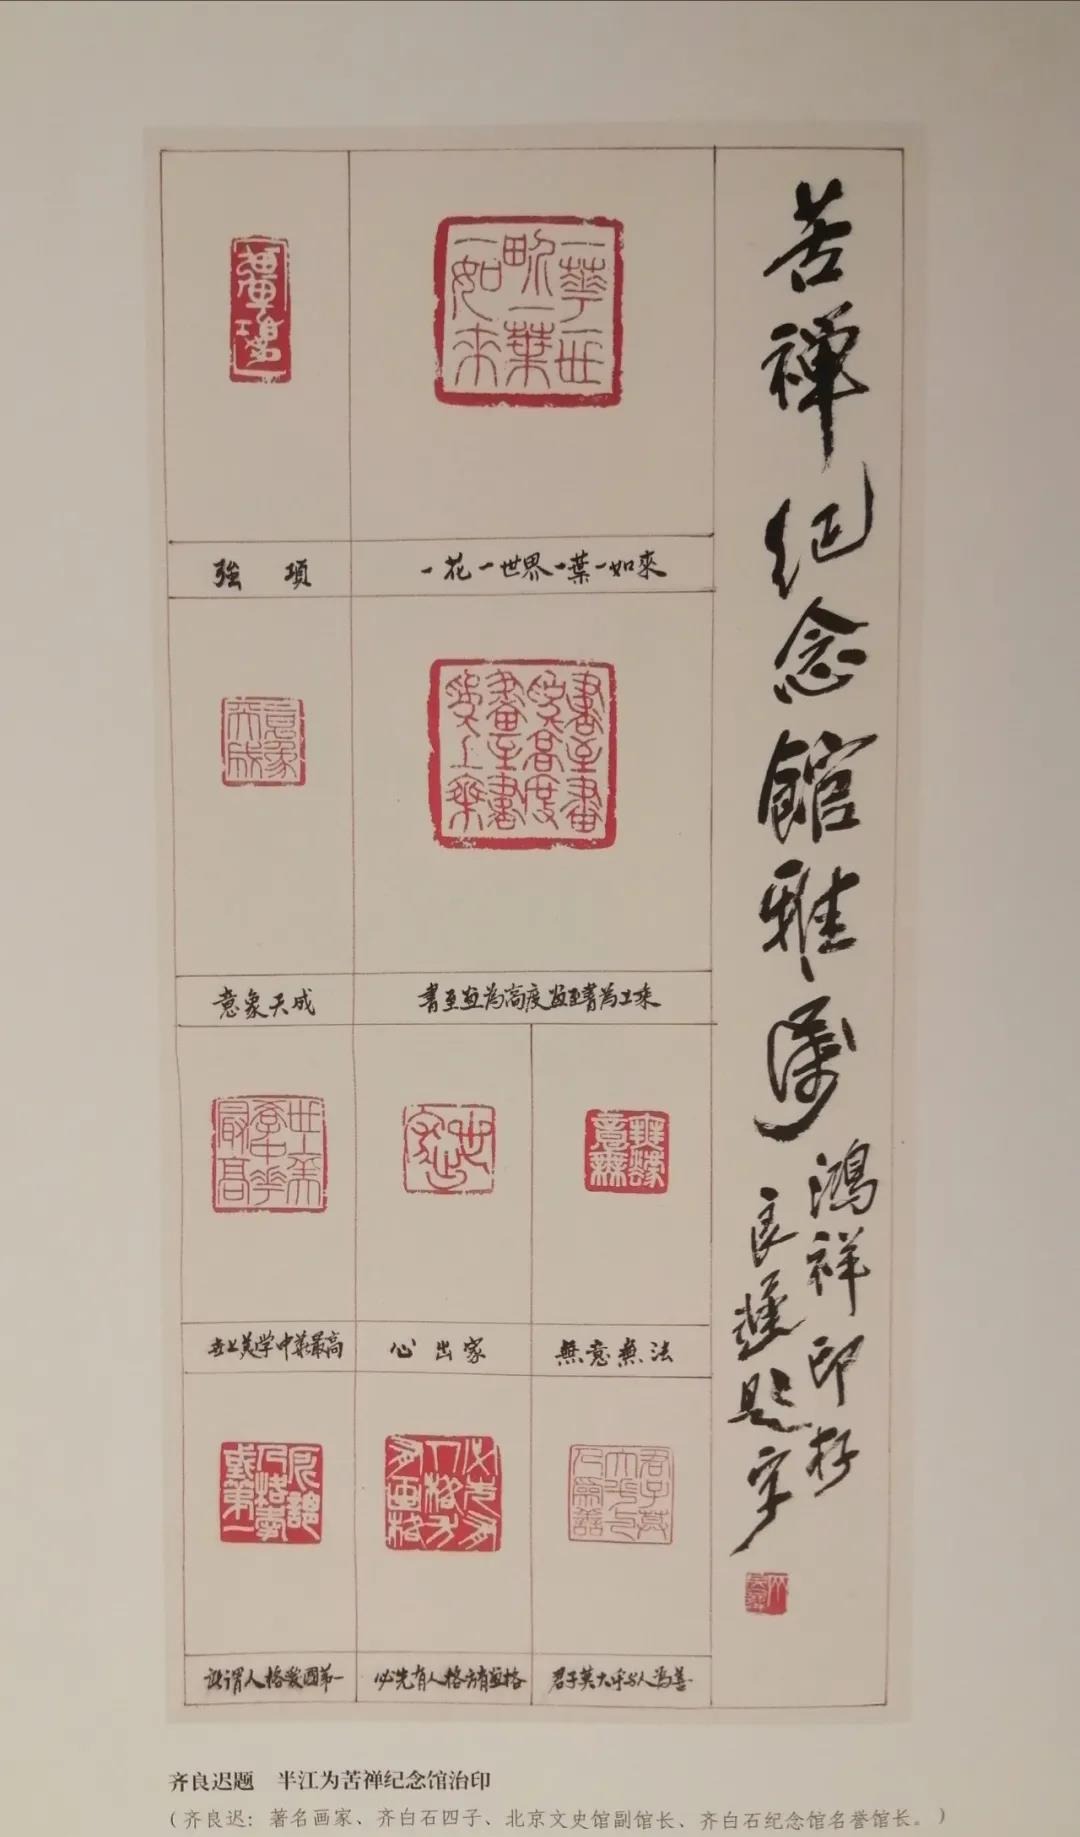 苦禅纪念館雅属
鸿祥印存
良遲題字
一花一世界一葉一如來
強項
書至画為高度画至書為上乘
意象天成
無意無法
心出家
世上美学中華最高
君子莫大乎与人為善
必先有人格方有画格
所謂人格爱國第一
齐良迟题　半江为苦禅纪念馆治印
（齐良迟：著名画家、齐白石四子、北京文史馆副馆长、齐白石纪念馆名誉馆长。）